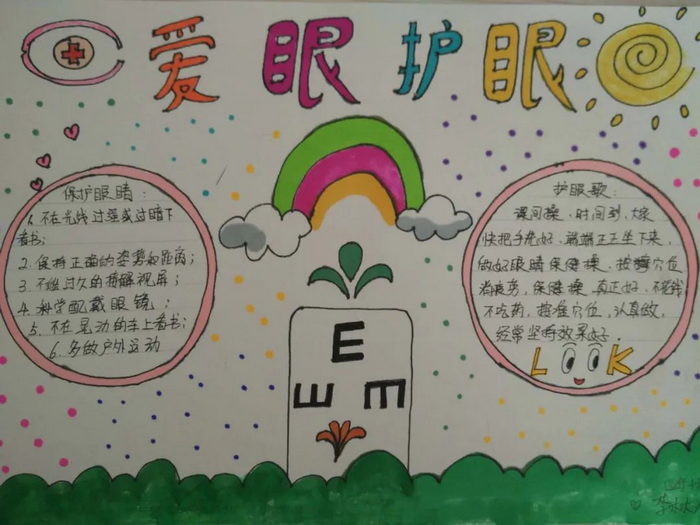 爱眼护眼
保护眼睛:
1. 不在光线过强或过暗下
看书;
2. 保持正确的姿势和距离;
3. 不过久的接触视屏;
4. 科学配戴眼镜;
5. 不在晃动的车上看书;
6. 多做户外运动
护眼歌:
课间操,时间到,大家
快把手洗好,端端正正坐下来,
做好眼睛保健操,按摩穴位
消疲劳,保健操,真正好,不花钱
不吃药,按准穴位,认真做,
经常坚持效果好.
LOOK
E
E
E